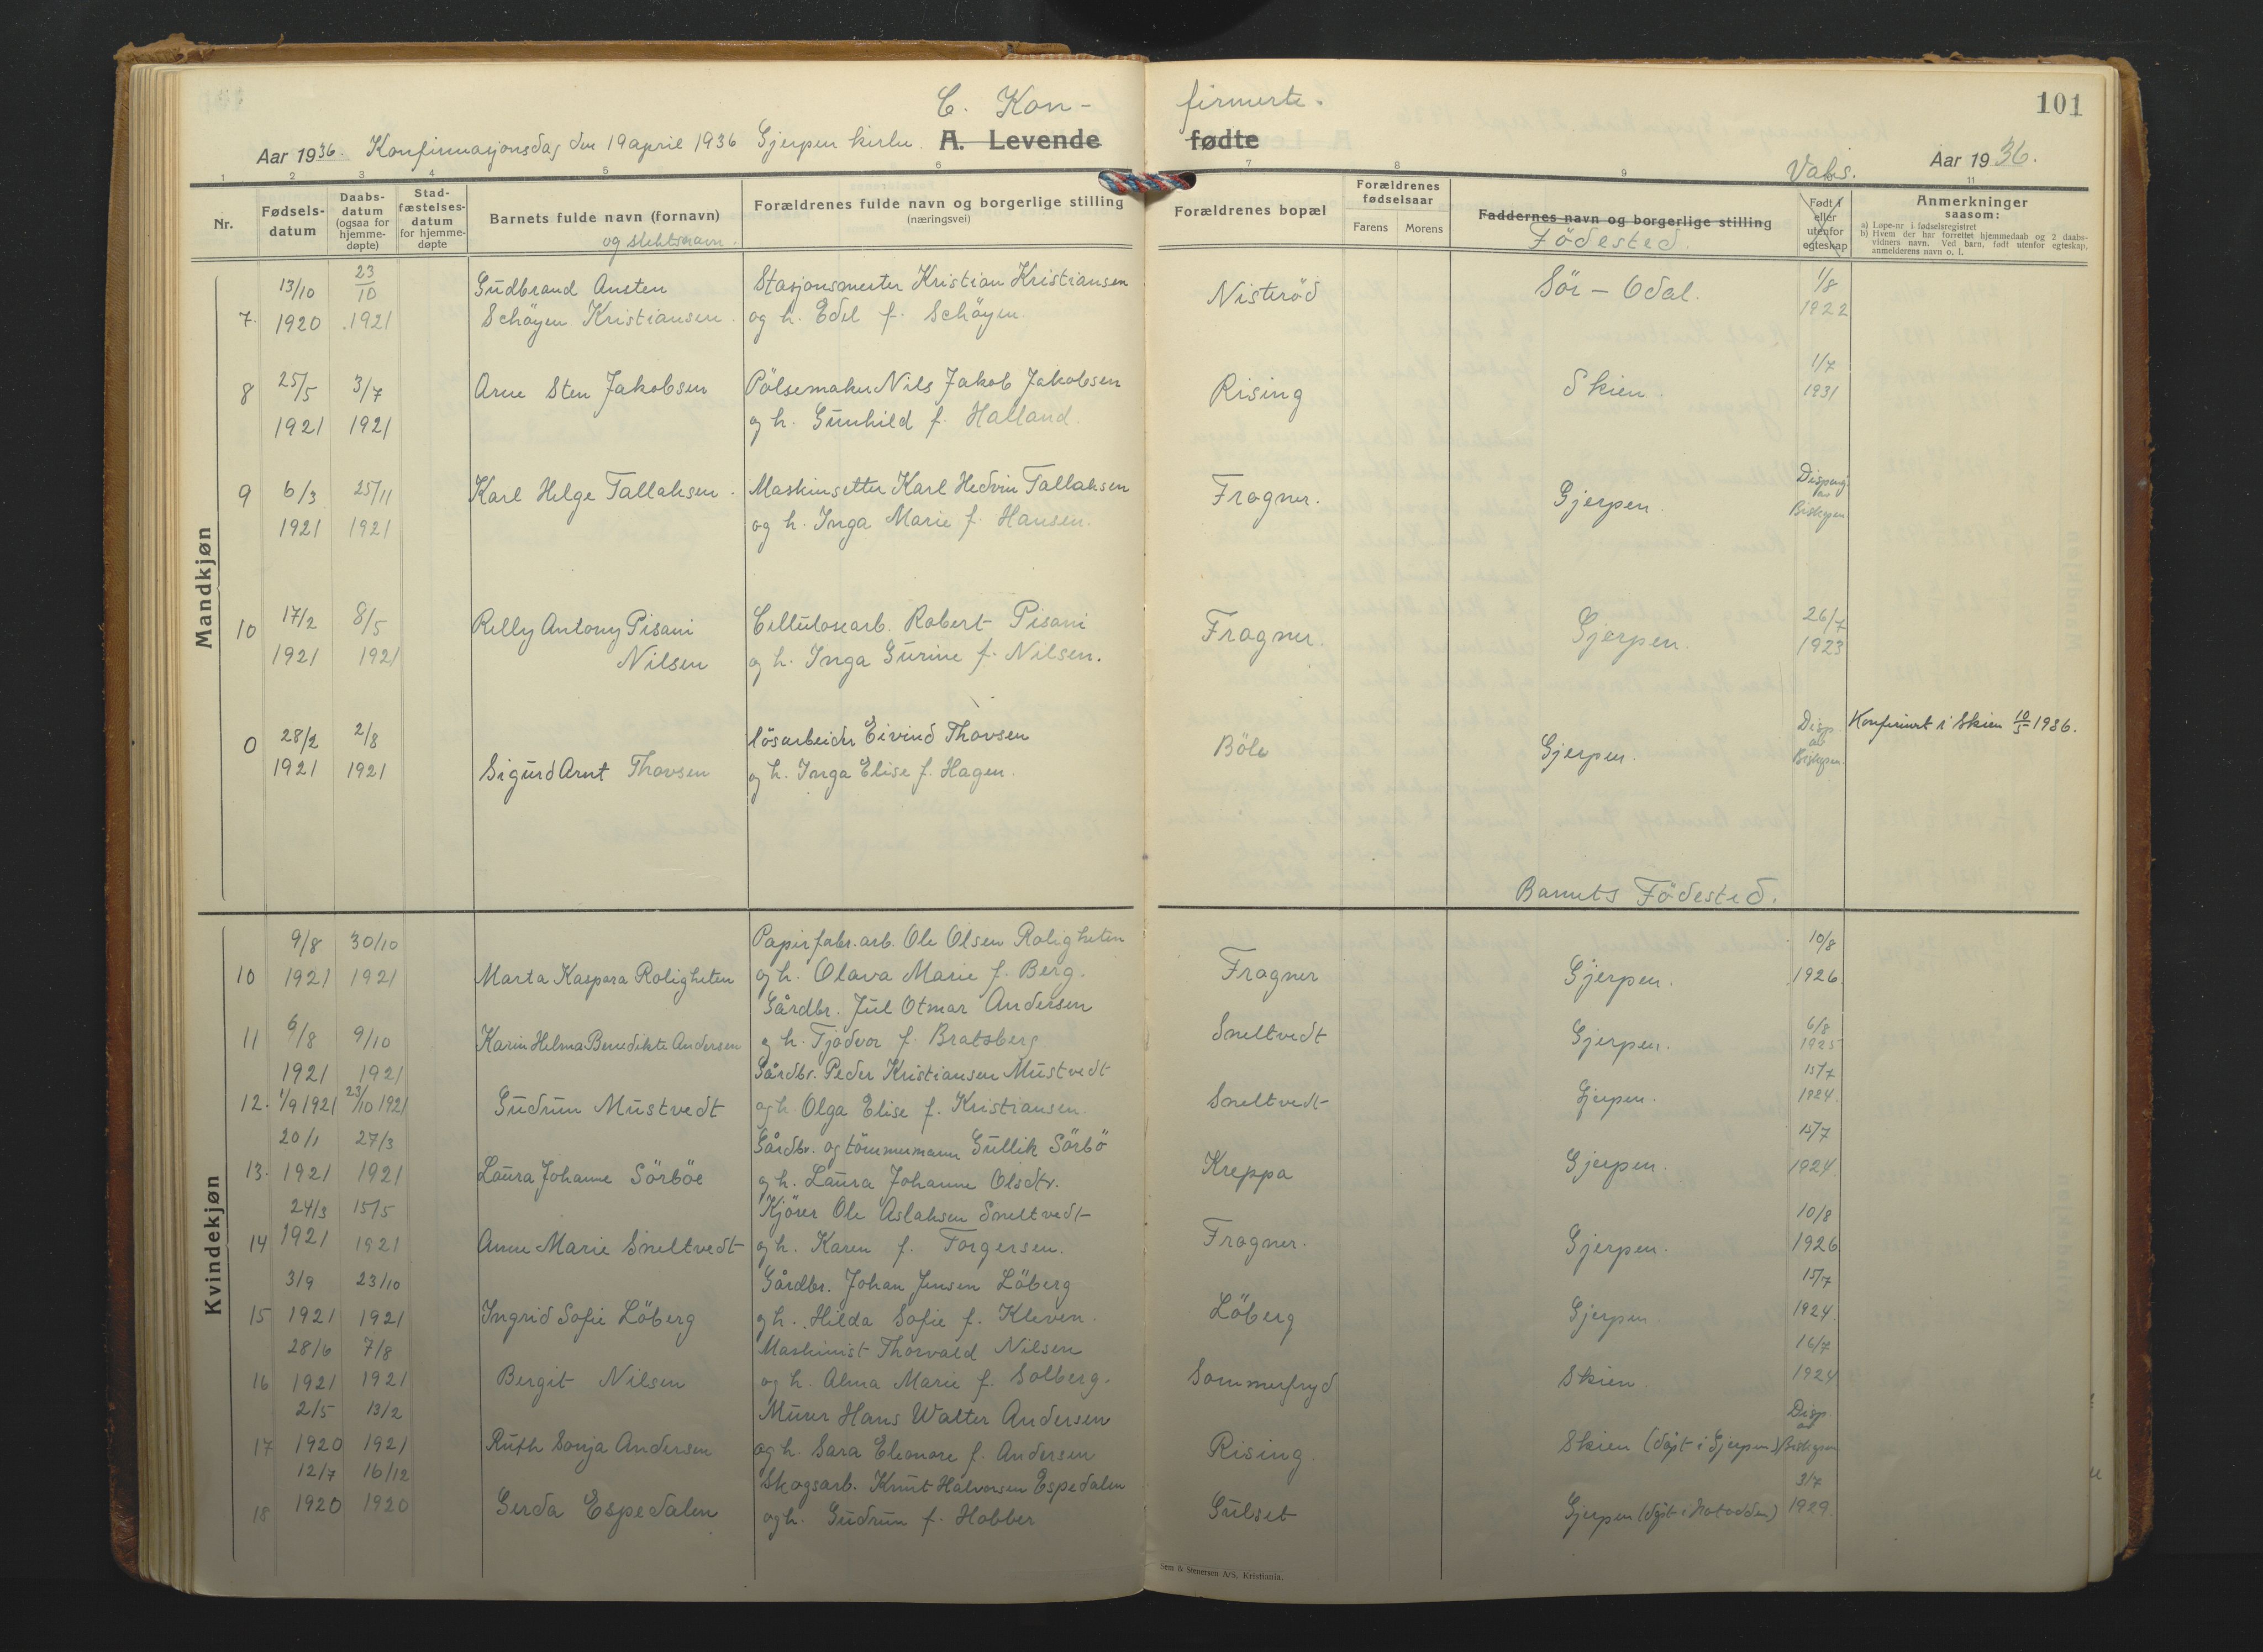 C. Kon-
firmerte.
101
Aar 1936. Konfirmasjonsdag den 19 april 1936 Gjerpen kirke. A. Levende
fødte
Vaks.
Aar 1936.
1 2 3 4 5 6 7 8 9 11
Nr.
Fødsels-
datum
Daabs-
datum
(ogsaa for
hjemme-
døpte)
Stad-
fæstelses-
datum
for hjemme-
døpte
Barnets fulde navn (fornavn)
og slektsnavn.
Forældrenes fulde navn og borgerlige stilling
(næringsvei)
Forældrenes bopæl
Forældrenes
fødselsaar
Farens Morens
Faddernes navn og borgerlige stilling
Födested.
Født i
eller
utenfor
egteskap
Anmerkninger
saasom:
a) Løpe-nr i fødselsregistret
b) Hvem der har forrettet hjemmedaab og 2 daabs-
vidners navn. Ved barn, født utenfor egteskap,
anmelderens navn o. l.
Mandkjøn
13/10 23/10 Gudbrand Austen Stasjonsmester Kristian Kristiansen Nisterød Sör-Odal. 1/8
7. 1920 1921 Schöyen Kristiansen. og h. Edel f. Schöyen. 1922
8 25/5 3/7 Arne Sten Jakobsen Pölsemaker Nils Jakob Jakobsen Rising Skien. 1/7
1921 1921 og h. Gunhild f. Halland. 1931
9 6/3 25/11 Karl Helge Tallaksen. Maskinsetter Karl Hedvin Tallaksen Fragner. Gjerpen. Dispens. av
1921 1921 og h. Inga Marie f. Hansen. Biskopen
10 17/2 8/5 Relly Antony Pisani Cellulosearb. Robert Pisani Fragner. Gjerpen. 26/7
1921 1921 Nilsen og h. Inga Gurine f. Nilsen. 1923
0 28/2 2/8 lösarbeider Eivind Thovsen Böle Gjerpen. Disp. av Konfirmert i Skien 10/5 1936.
1921 1921 Sigurd Arnt Thovsen og h. Inga Elise f. Hagen. Biskopen.
Barnets Födested.
Kvindekjøn
9/8 30/10 Papirfabr.arb. Ole Olsen Roligheten 10/8
10 1921 1921 Marta Kaspara Roligheten og h. Olava Marie f. Berg. Fragner Gjerpen. 1926.
Gårdbr. Jul Otmar Andersen
11 6/8 9/10 Karin Helma Benedikte Andersen og h. Tjodvor f. Bratsberg Sneltvedt Gjerpen. 6/8 1925
1921 1921 Gårdbr. Peder Kristiansen Mustvedt 15/7
12. 1/9 1921 23/10 1921 Gudrun Mustvedt og h Olga Elise f. Kristiansen. Sneltvedt Gjerpen. 1924.
20/1 27/3 Gårdbr. og tömmermann Gullik Sörbö 15/7
13. 1921 1921 Laura Johanne Sörböe og h. Laura Johanne Olsdtr. Kreppa Gjerpen. 1924.
24/3 15/5 Kjörer Ole Aslaksen Sneltvedt 10/8
14 1921 1921 Anne Marie Sneltvedt og h. Karen f. Torgersen. Fragner. Gjerpen. 1926
3/9 23/10 Gårdbr. Johan Jensen Löberg 15/7
15 1921 1921 Ingrid Sofie Löberg og h. Hilda Sofie f. Kleven. Löberg Gjerpen 1924.
28/6 7/8 Maskinist Thorvald Nilsen 16/7
16 1921 1921 Bergit Nilsen og h. Alma Marie f. Solberg. Sommerfryd Skien. 1924
2/5 13/2 Murer Hans Walter Andersen Disp. av
17 1920 1921 Ruth Sonja Andersen og h. Sara Eleonore f. Andersen Rising. Skien (döpt i Gjerpen) Biskopen
12/7 16/12 Skogsarb. Knut Halvorsen Espedalen 3/7
18 1920 1920 Gerda Espedalen og h. Gudrun f. Hobber Gulset Gjerpen (döpt i Notodden) 1929.
Sem & Stenersen A/S, Kristiania.